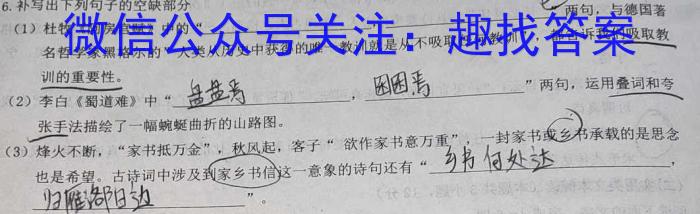 6. 补写出下列句子的空缺部分
(1) 杜牧《阿房宫赋》中的“ 两句，与德国著
名哲学家黑格尔的“人类从历史中获得的唯一教训就是从不吸取任何教训”，都告诉我们吸取教
训的重要性。
微信公众号关注：趣找答案
(2) 李白《蜀道难》中“ 盘盘焉 ， 困困焉 ”两句，运用叠词和夸
张手法描绘了一幅蜿蜒曲折的山路图。
(3) 烽火不断，“家书抵万金”，秋风起，客子“ 欲作家书意万重”，一封家书或乡书承载的是思念
也是希望。古诗词中涉及到家乡书信这一意象的诗句还有“ 乡书何处达
归雁洛阳边 ”。